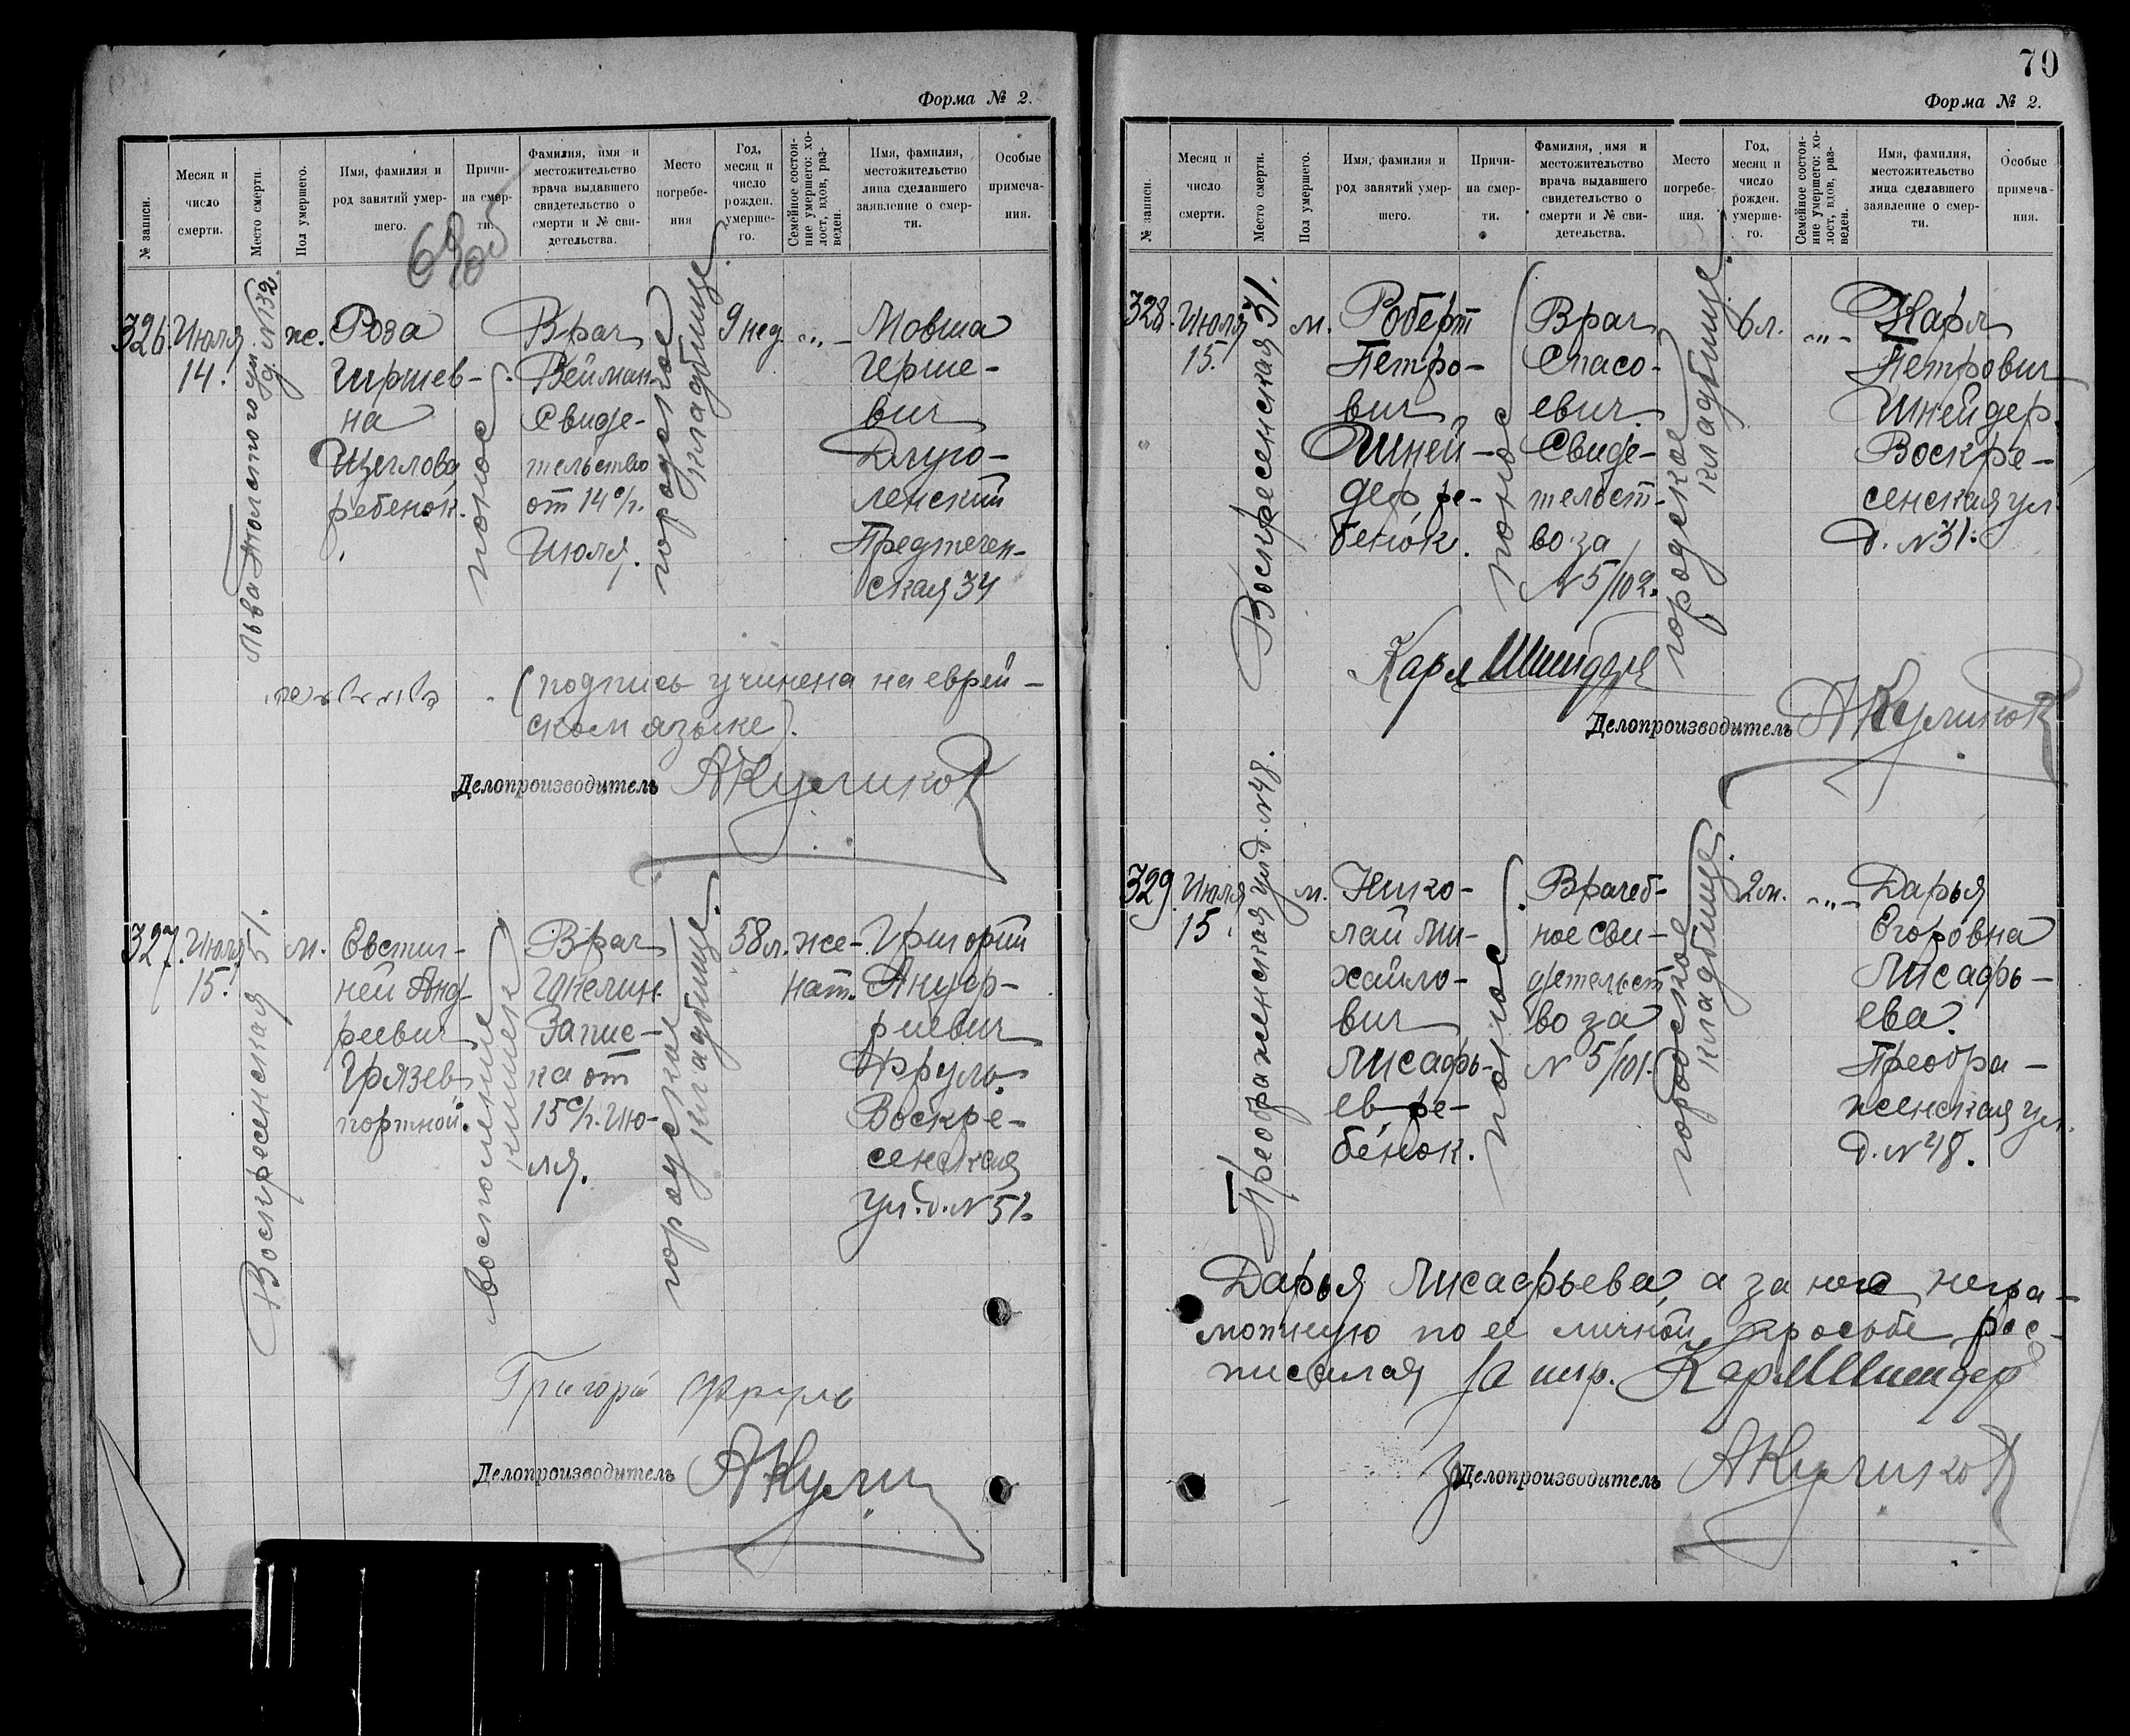 Форма № 2.
№ записи.
Месяц и число смерти.
Место смерти.
Пол умершего.
Имя, фамилия и род занятий умершего.
Причина смерти.
Фамилия, имя и местожительство врача выдавшего свидетельство о смерти и № свидетельства.
Место погребения
Год, месяц и число рожден. умершего.
Семейное состояние умершего: холост, вдов, разведен.
Имя, фамилия, местожительство лица сделавшего заявление о смерти.
Особые примечания.
69 об
326.
Июля
14.
Льва Толстого ул.
д. № 132.
ж.
Роза
Гиршев-
на
Щеглова,
ребенок.
понос
Врач
Вейман.
Свиде-
тельство
от 14 с/г.
Июля.
городское
кладбище.
9 нед.
"
Мовша
Герше-
вич
Длуго-
ленский
Предтечен-
ская 34
(подпись учинена на еврей-
ском языке).
Делопроизводитель АКуликов
327.
Июля
15.
Воскресенская 51.
м.
Евстиг-
ней Анд-
реевич
Грязев
портной.
восполение
кишек
Врач
Гинелин.
Запис-
ка от
15 с/г. Ию-
ля.
городское
кладбище.
58 л.
же-
нат.
Григорий
Ануфр-
риевич
Фруль.
Воскре-
сенская
ул. д. № 51.
Григорий Фруль
Делопроизводитель АКули
70
Форма № 2.
№ записи.
Месяц и число смерти.
Место смерти.
Пол умершего.
Имя, фамилия и род занятий умершего.
Причина смерти.
Фамилия, имя и местожительство врача выдавшего свидетельство о смерти и № свидетельства.
Место погребения.
Год, месяц и число рожден. умершего.
Семейное состояние умершего: холост, вдов, разведен.
Имя, фамилия, местожительство лица сделавшего заявление о смерти.
Особые примечания.
328.
Июля
15.
Воскресенская 31.
м.
Роберт
Петро-
вич
Шней-
дер, ре-
бенок.
понос
Врач
Спасо-
евич.
Свиде-
тельст-
во за
№ 5/102.
городское
кладбище.
6 л.
"
Карл
Петрович
Шнейдер.
Воскре-
сенская ул.
д. № 31.
Карл Шнейдер
Делопроизводитель АКуликов
329.
Июля
15.
Преображенская ул. д. № 48.
м.
Нико-
лай Ми-
хайло-
вич
Лисафь-
ев ре-
бенок.
понос
Врачеб-
ное сви-
детельст
во за
№ 5/101.
городское
кладбище.
2 м.
"
Дарья
Егоровна
Лисафь-
ева.
Преобра-
женская ул.
д. № 48.
Дарья Лисафьева, а за нее негра-
мотную по ее личной просьбе рос-
писался Карл Шнейдер
Делопроизводитель АКуликов